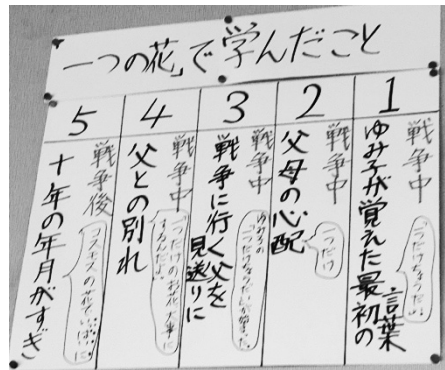 一つの花」で学んだこと
1
戦争中
一つだけちょうだい
ゆみ子が覚えた最初の
言葉
2
戦争中
一つだけ
父母の心配
3
戦争中
ゆみ子の
一つだけちょうだいが始まった
戦争に行く父を
見送りに
4
戦争中
一つだけのお花、大事に
するんだよ
父との別れ
5
戦争後
コスモスの花でいっぱいに
十年の年月がすぎ